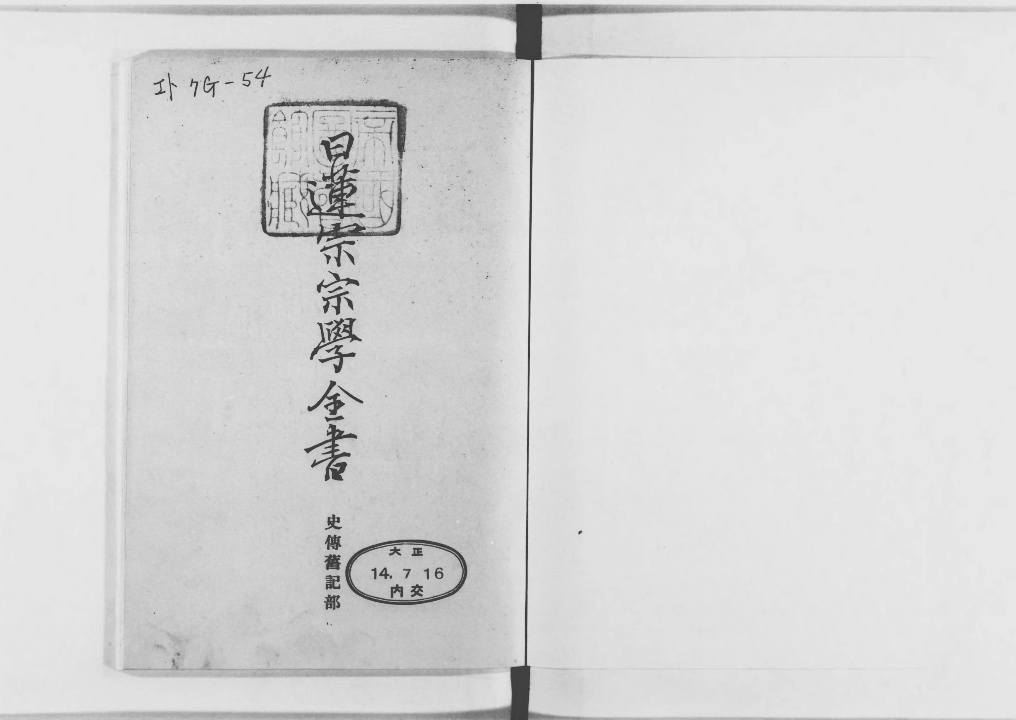 エト 7G-54
日蓮宗宗學全書
史傳舊記部
大正
14.7 16
内交